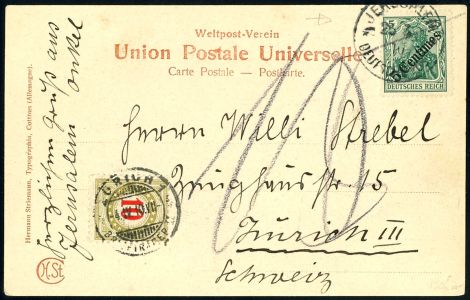 Weltpost-Verein
Union Postale Universelle
Carte Postale — Postkarte.
JERUSALEM
5
5 Centimes
DEUTSCHES REICH
Hermann Striemann, Typographia, Cottbus (Allemagne).
Herzlichen Gruß aus
Jerusalem
Onkel
10
Herrn Willi Strebel
Zeughausstr. 15
Zürich III
Schweiz
ZÜRICH
10
H.St